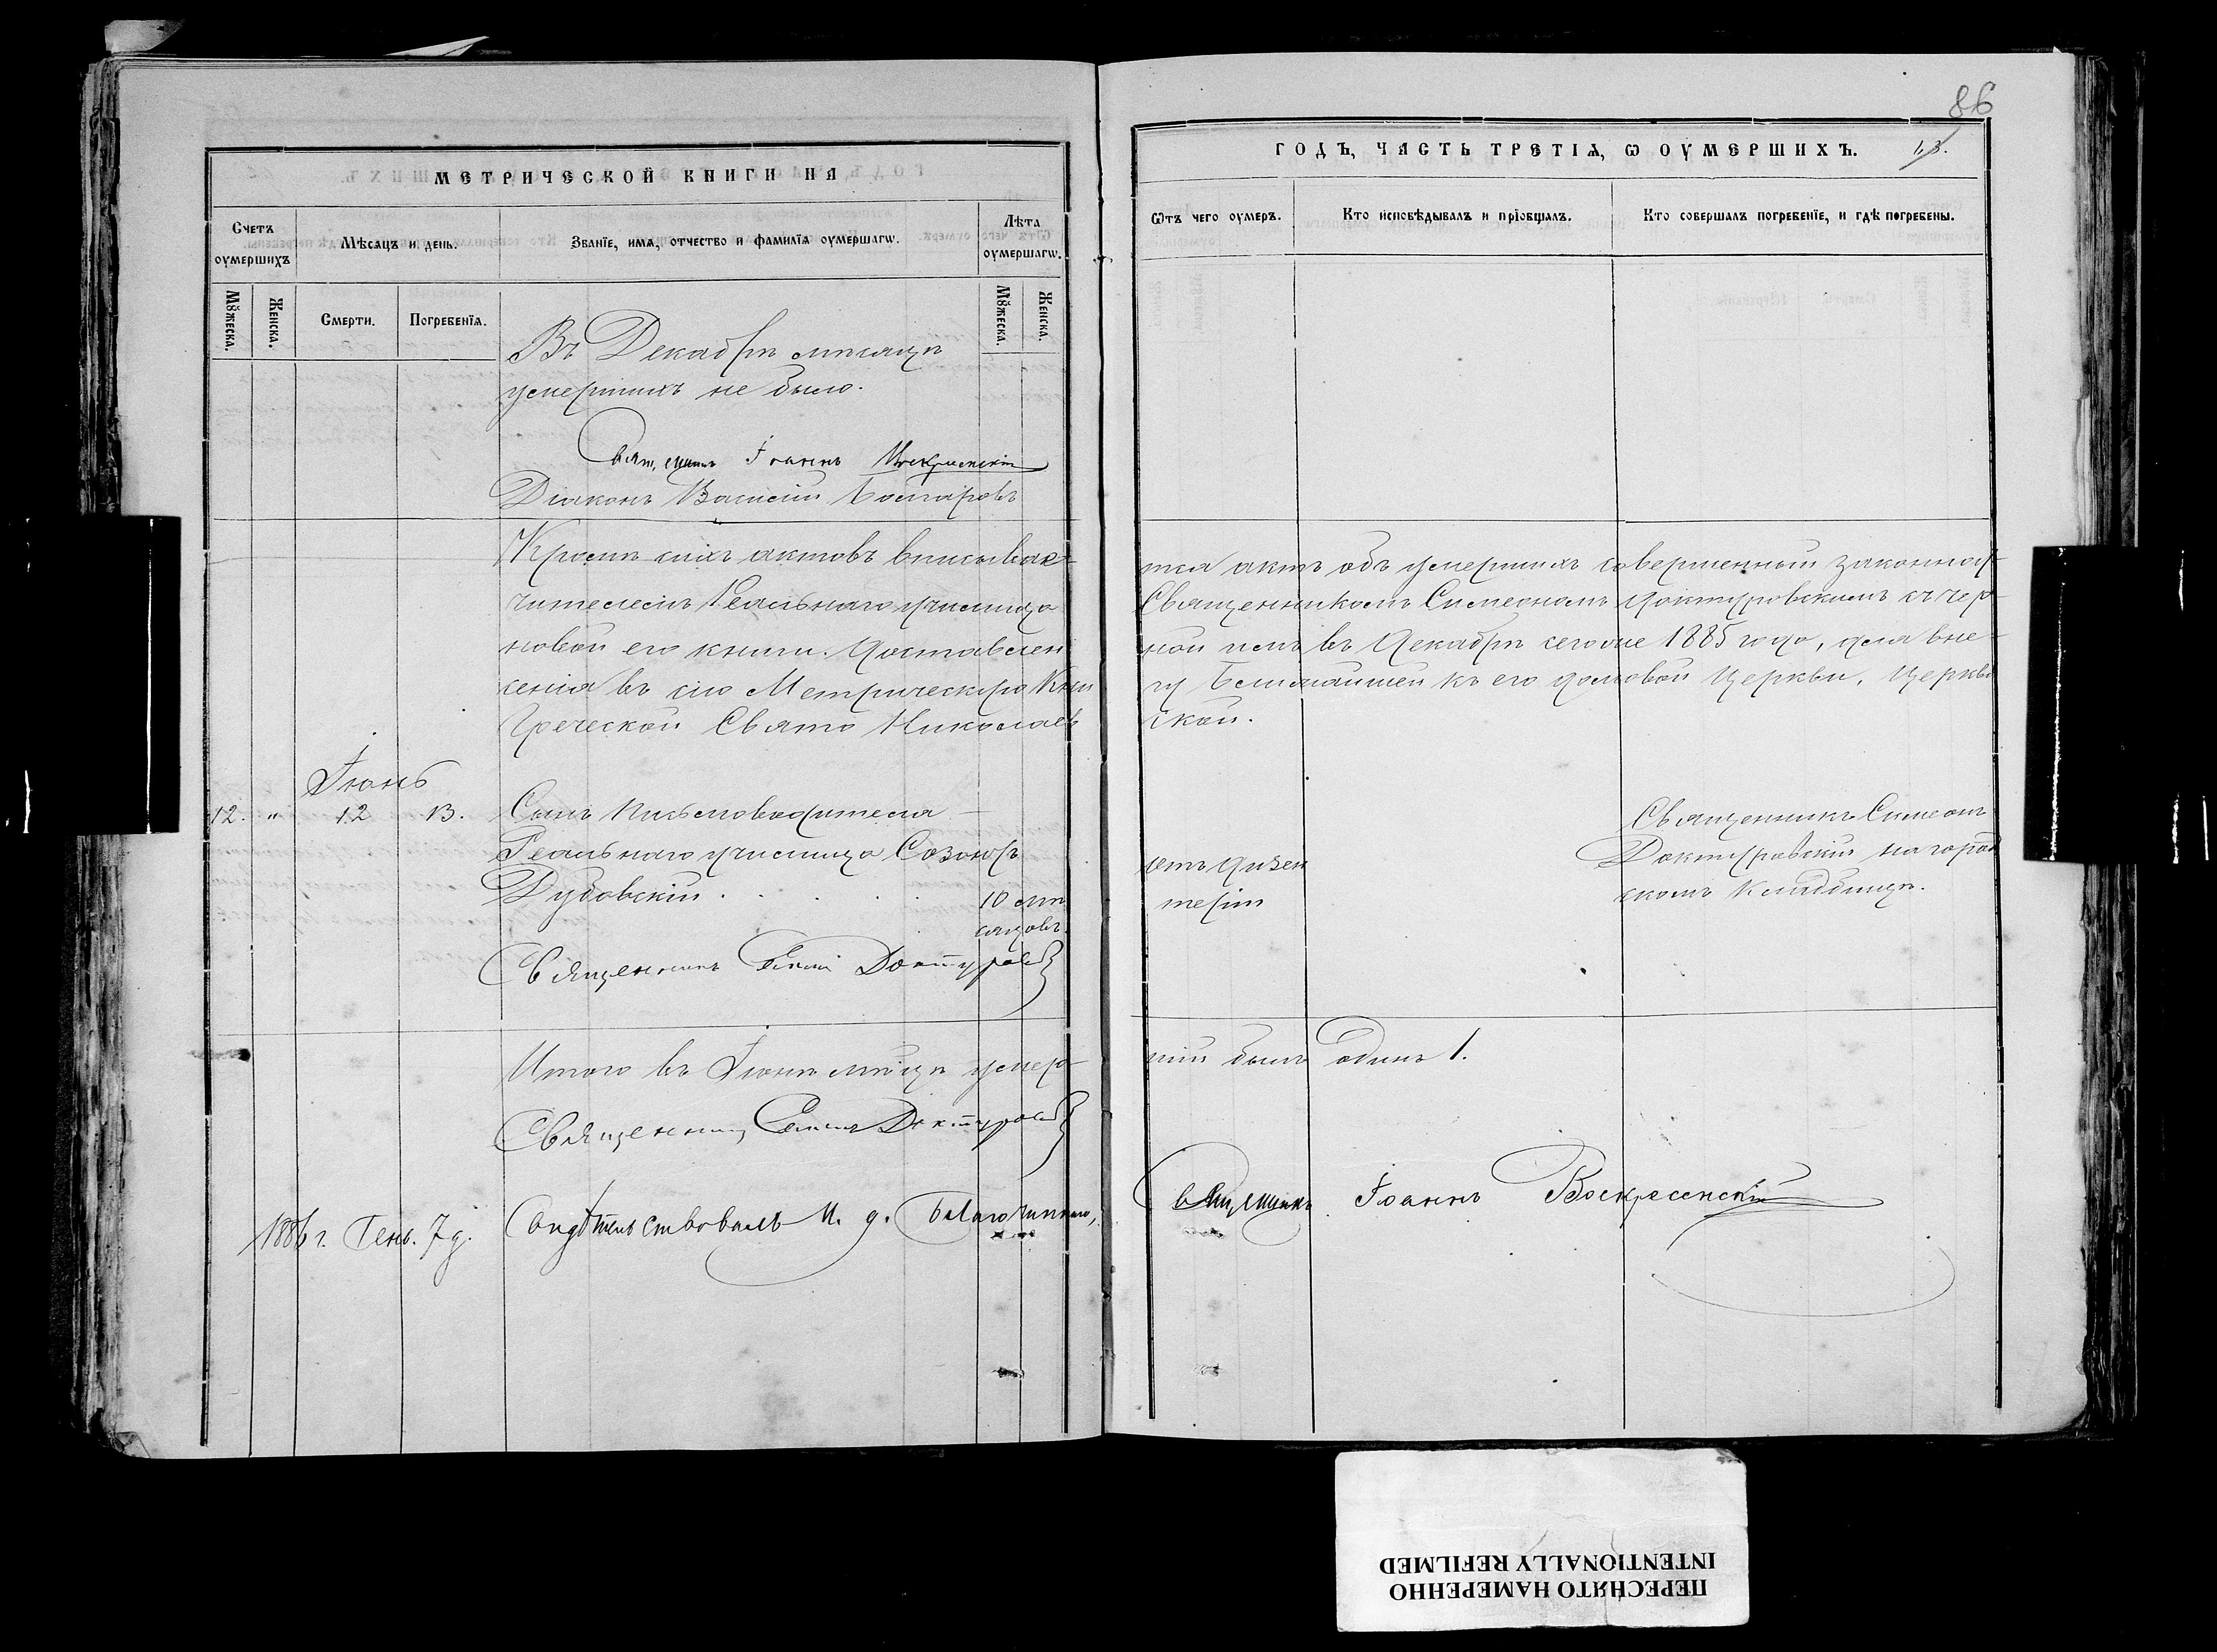 МЕТРИЧЕСКОЙ КНИГИ НА
Счетъ оумершихъ
Мѣсяцъ и день.
Званїе, имѧ, отчество и фамилїа оумершагѡ.
Лѣта оумершагѡ.
Мꙋжеска.
Женска.
Смерти.
Погребенїѧ.
Мꙋжеска.
Женска.
Въ Декабрѣ мѣсяцѣ
умершихъ не было.
Священникъ Іоаннъ Воскресенскій
Діаконъ Василій
Кромѣ сихъ актовъ вписывае-
чителемъ Реальнаго училища
новой его книги. Доставлен
сенія въ сію Метрическую Кни
Греческой Свято Николаев
Іюнь
12. " 12 13. Сынъ Письмоводителя
Реальнаго училища Созонтъ
Дубовскій . . . . . 10 мѣ
сяцовъ.
Священникъ Симеонъ Доктуровскій
Итого въ Іюнѣ мѣсяцѣ умер-
Священникъ Симеонъ Доктуровскій
1886 г. Генв. 7 д. Свидѣтельствовалъ И. д. Благочиннаго,
86
ГОДЪ, ЧАСТЬ ТРЕТІѦ, Ѡ ОУМЕРШИХЪ.
Ѿтъ чего оумеръ.
Кто исповѣдывалъ и прїобщалъ.
Кто совершалъ погребенїе, и гдѣ погребены.
тся актъ объ умершихъ совершенный законоу-
Священникомъ Симеономъ Доктуровскимъ съ чер-
ной имъ въ Декабрѣ сего же 1885 года, для вне-
гу ближайшей къ его домовой Церкви, Церкви
ской.
отъ дизен
теріи
Священникъ Симеонъ
Доктуровскій на город
скомъ кладбищѣ.
шій былъ одинъ 1.
Священникъ Іоаннъ Воскресенскій
ПЕРЕСНЯТО НАМЕРЕННО
INTENTIONALLY REFILMED